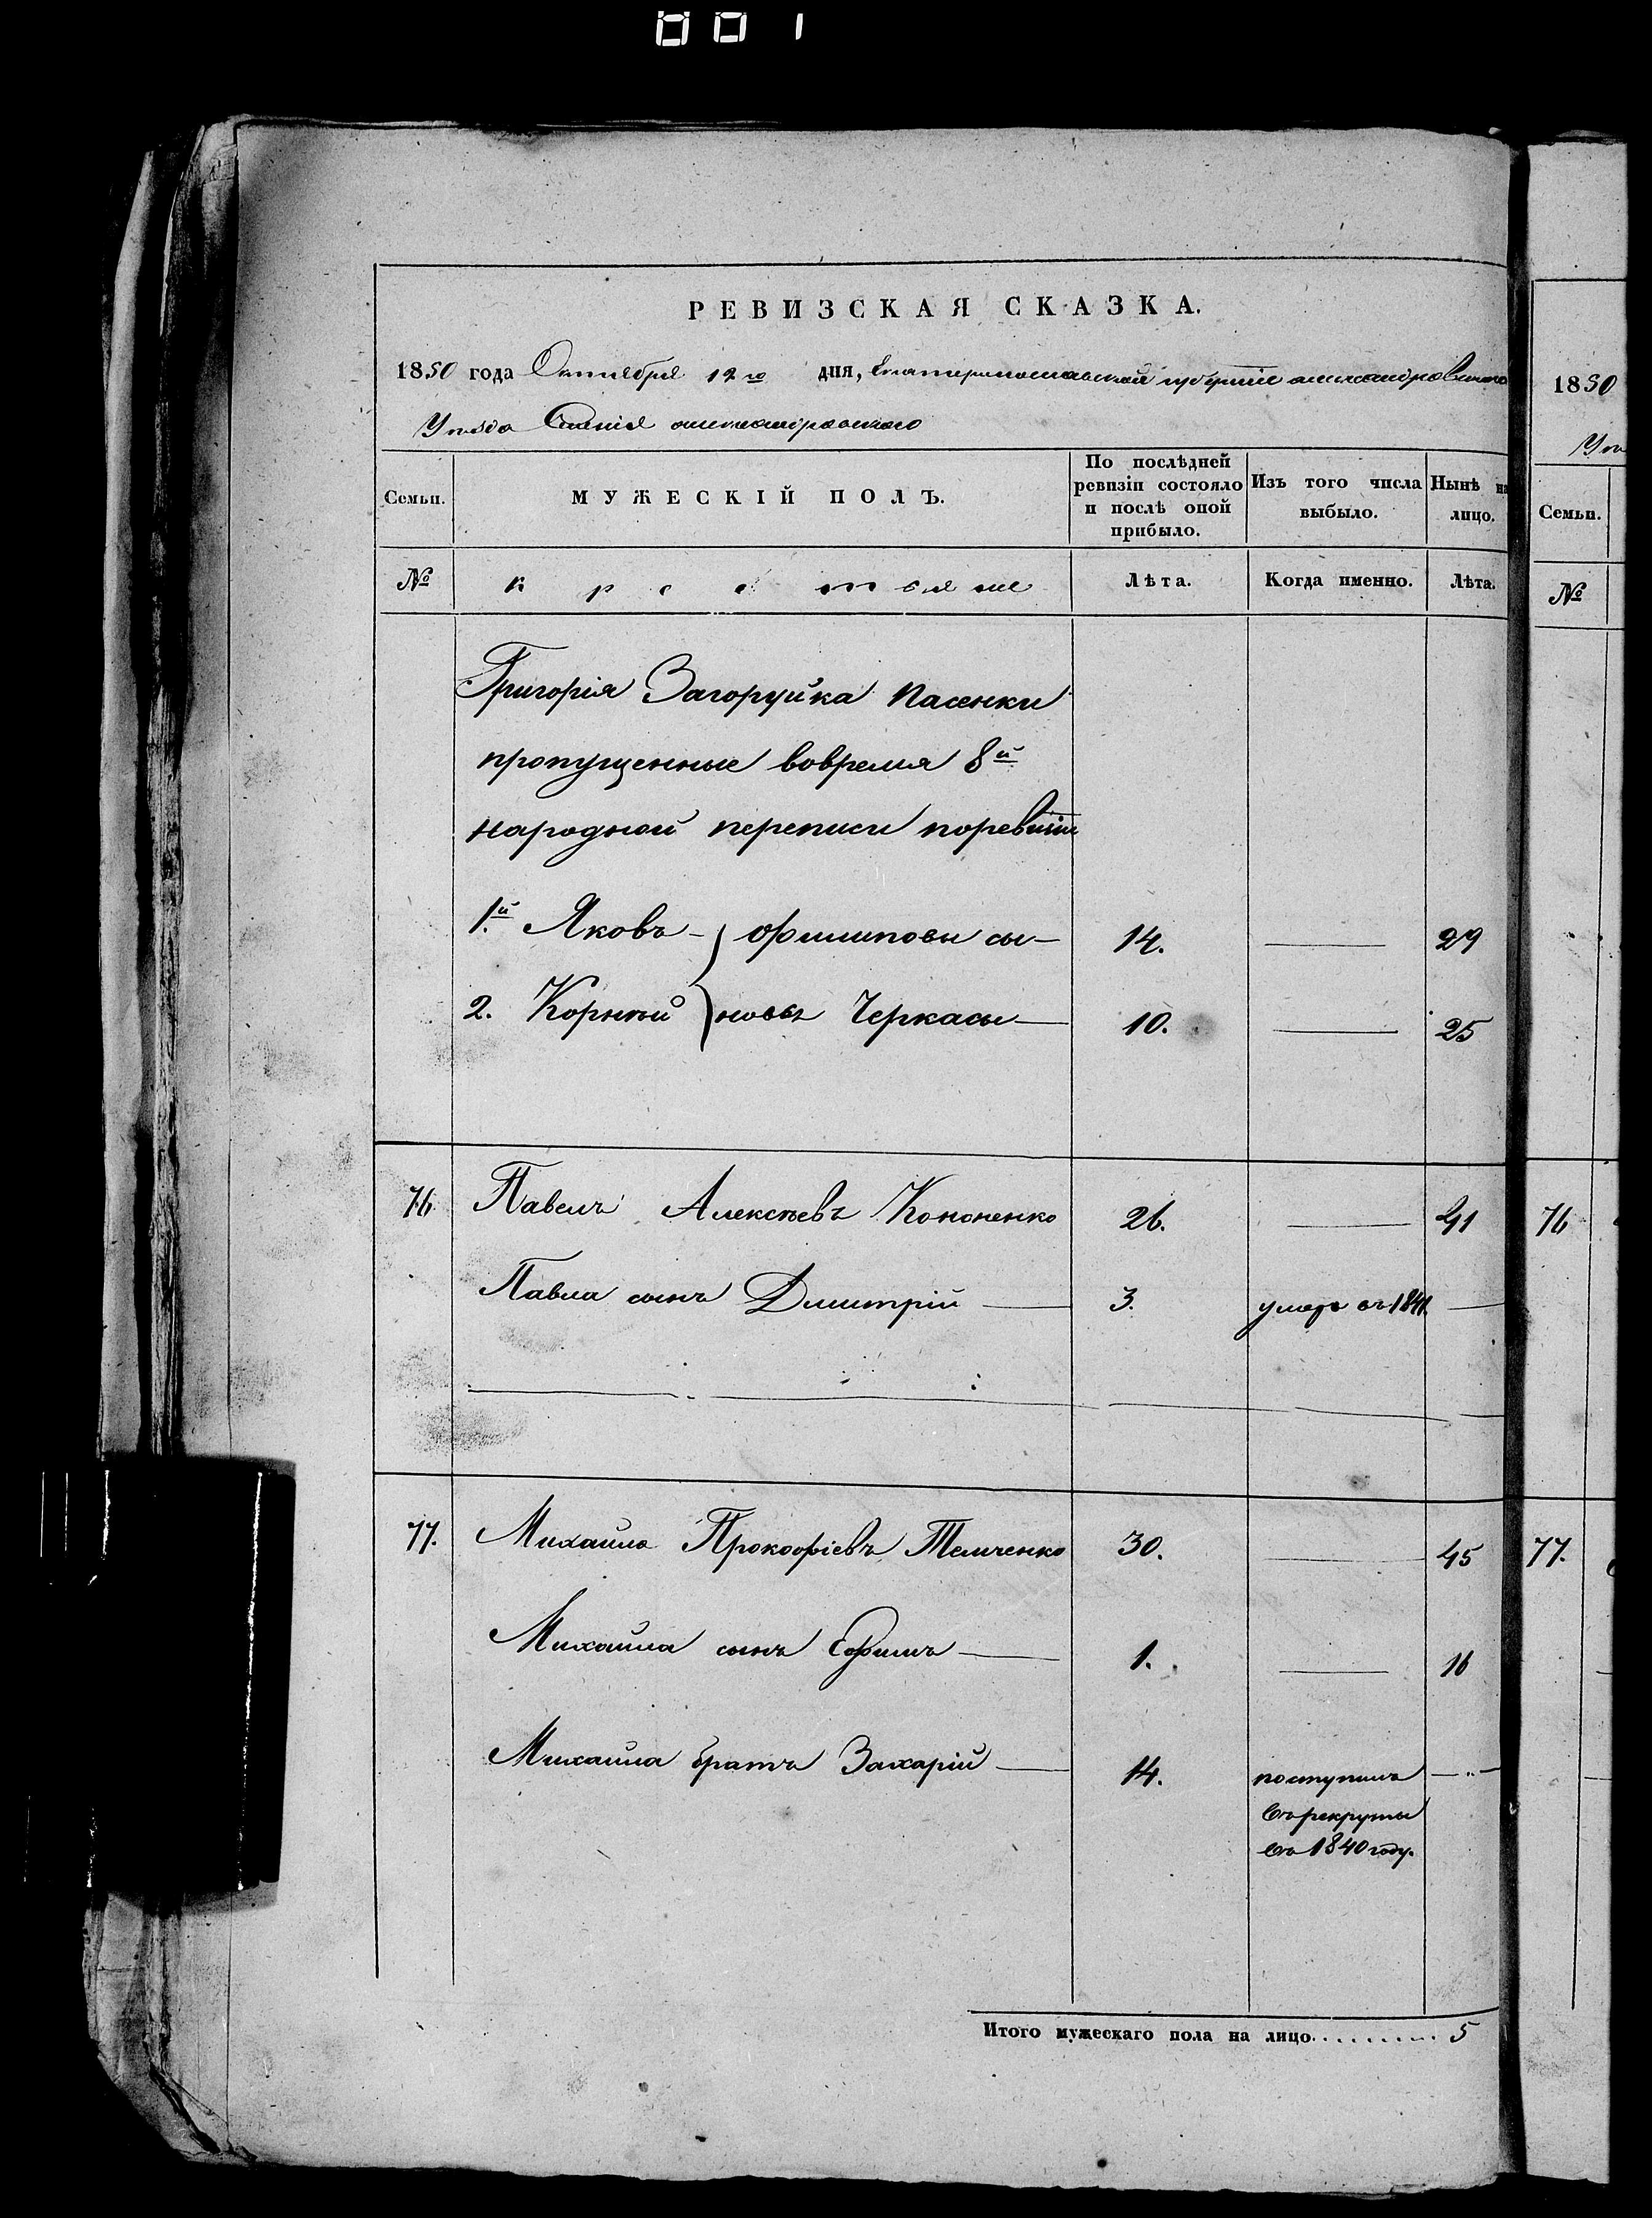 001
РЕВИЗСКАЯ СКАЗКА.
1850 года Октября 12го дня, Екатеринославской губернiи Александровскаго
Уѣзда Имѣнiя Александровскаго
Семьи.
МУЖЕСКIЙ ПОЛЪ.
По послѣдней ревизiи состояло и послѣ оной прибыло.
Изъ того числа выбыло.
Нынѣ на лицо.
№
крестьяне
Лѣта.
Когда именно.
Лѣта.
Григорiя Загоруйка пасенки
пропущенные вовремя 8й
народной переписи поревизiи
1.й Яковъ } Филиповы сы- 14. — 29
2. Корнѣй } новья Черкасы — 10. — 25
76 Павелъ Алексѣевъ Кононенко 26. — 41
Павла сынъ Димитрiй — 3. умеръ въ 1841. —
77. Михайло Прокофiевъ Темченко 30. — 45
Михайла сынъ Ефимъ — 1. — 16
Михайла братъ Захарiй — 14. поступилъ —"—
въ рекруты
въ 1840 году.
Итого мужескаго пола на лицо......... 5
1850
Уѣ
Семьи.
№
76
77.